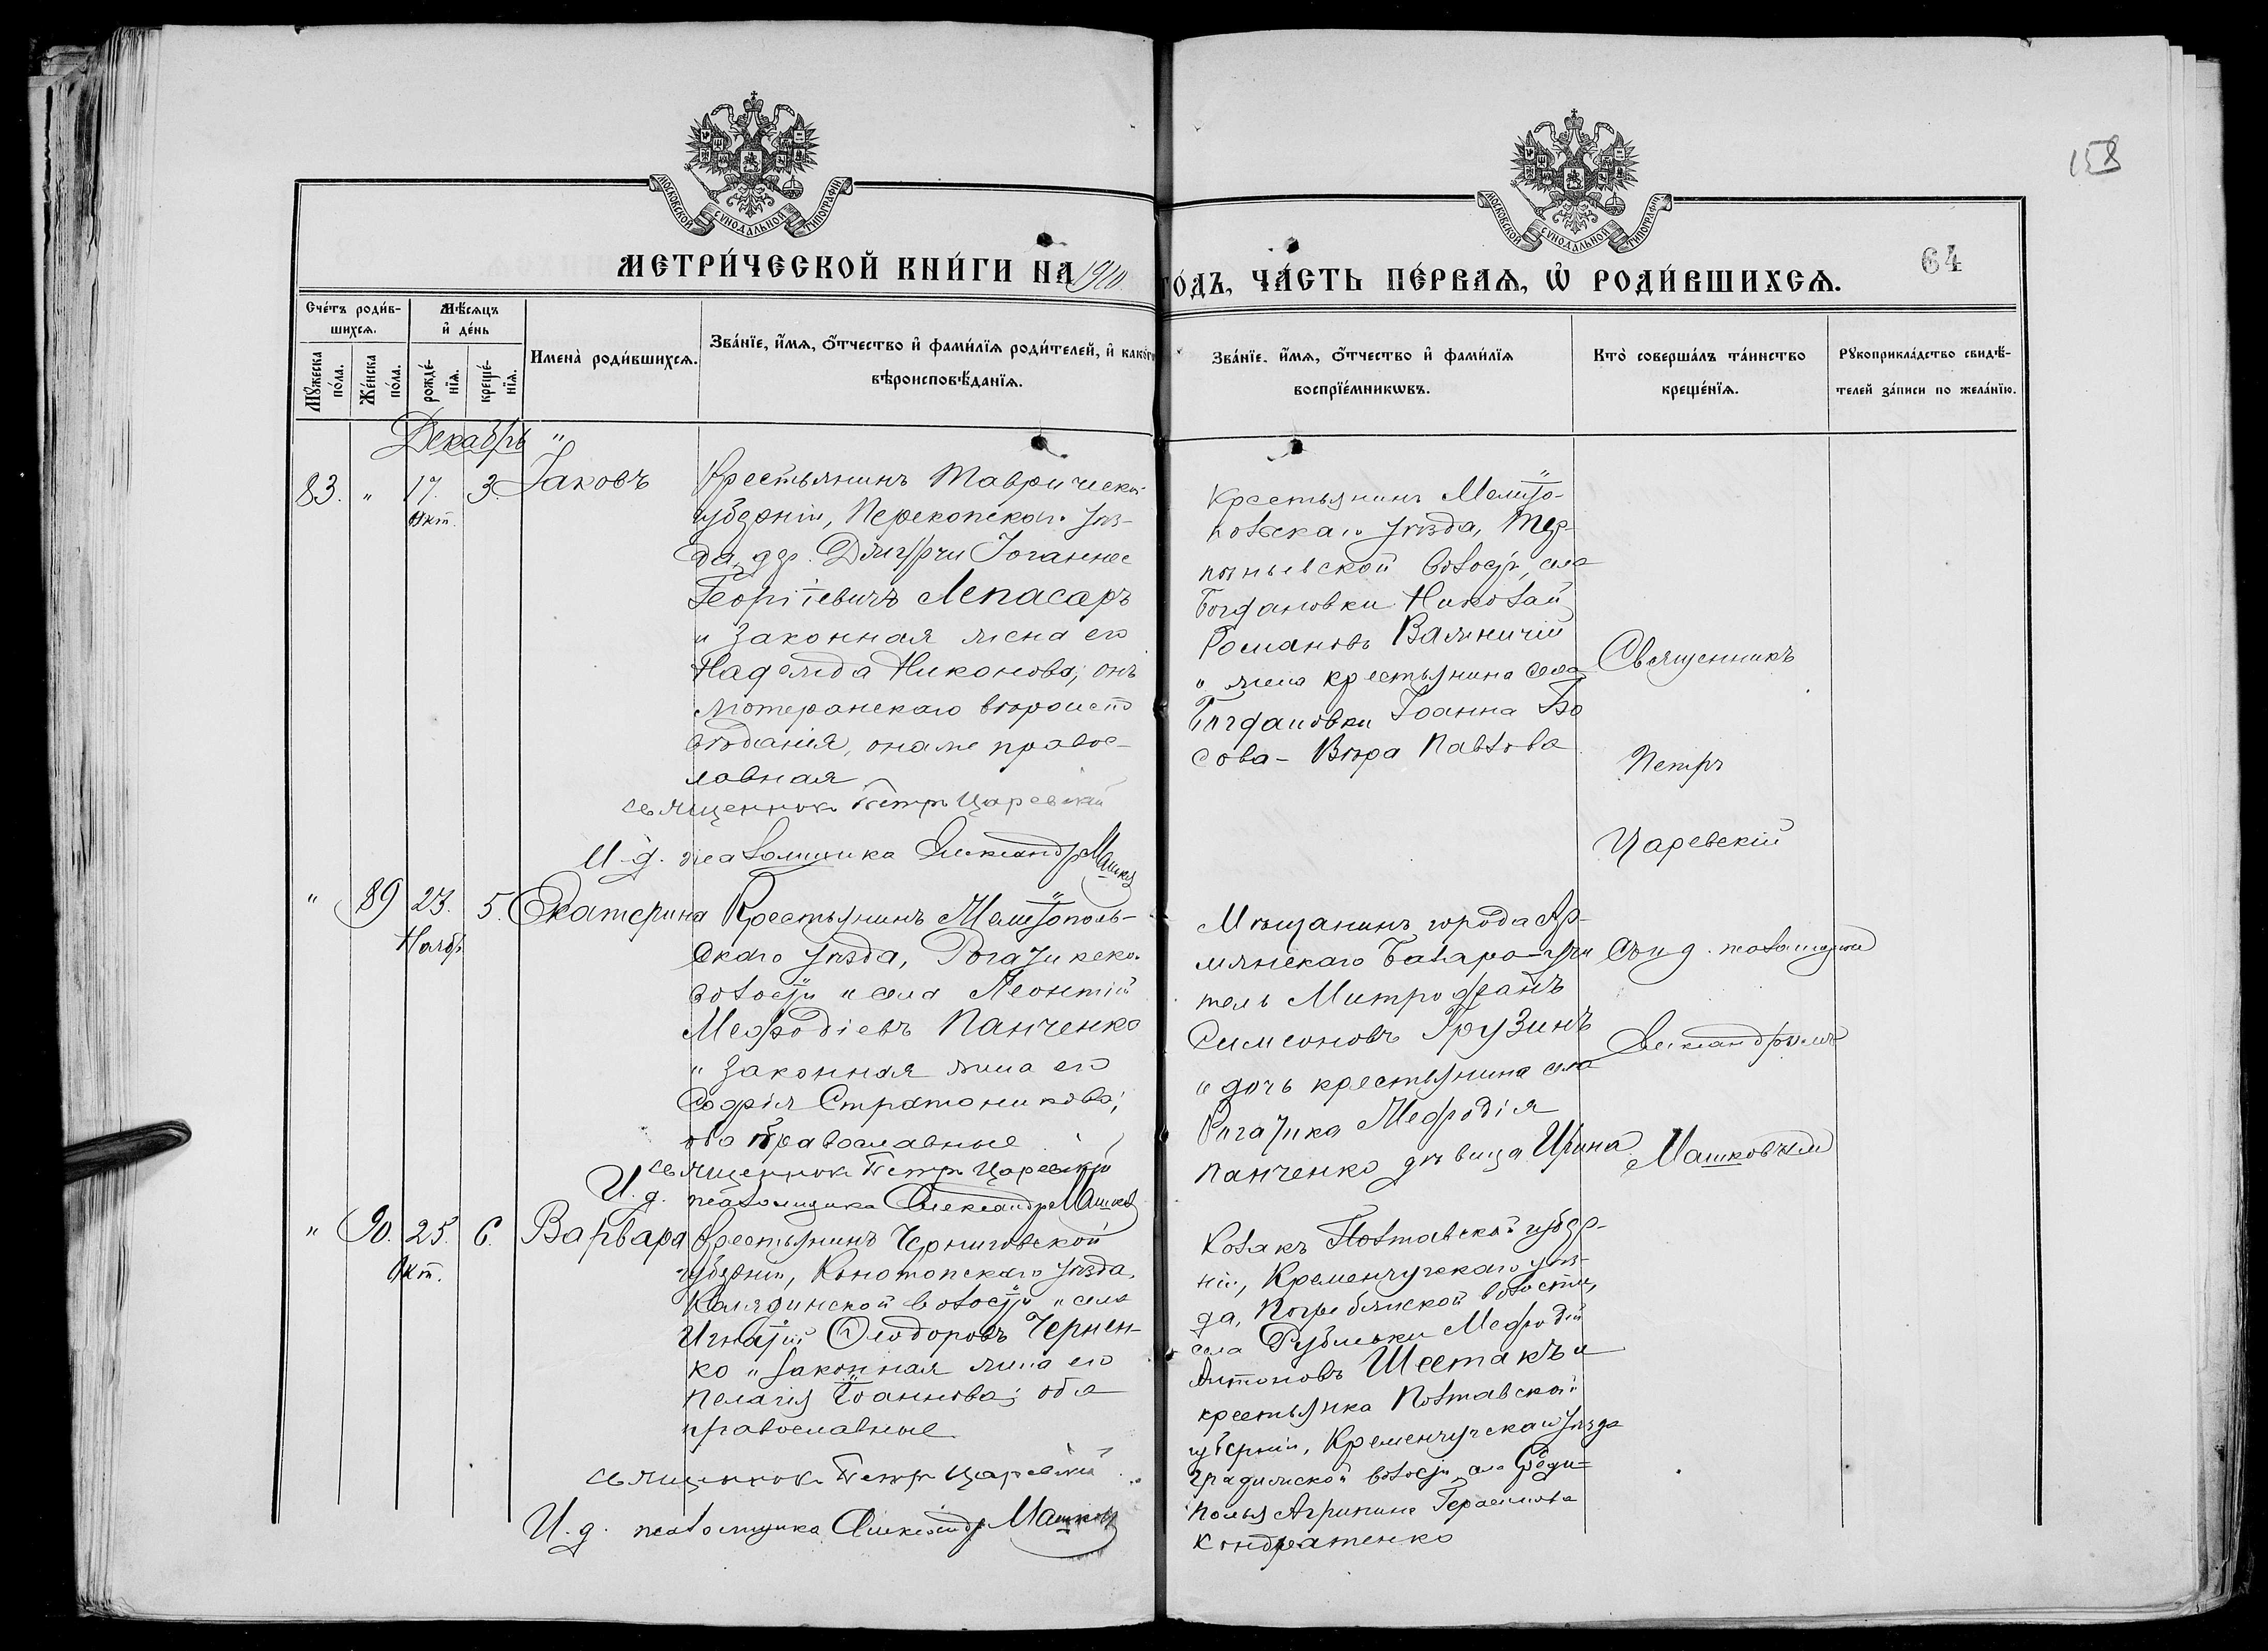 158
64
МОСКОВСКОЙ СУНОДАЛЬНОЙ ТИПОГРАФІИ
МОСКОВСКОЙ СУНОДАЛЬНОЙ ТИПОГРАФІИ
МЕТРИ́ЧЕСКОЙ КНИ́ГИ НА 1910
ГО́ДЪ, ЧА́СТЬ ПЕ́РВАѦ, Ѽ РОДИ́ВШИХСѦ.
Сче́тъ роди́в-
шихсѧ.
Мѣ́сѧцъ
и҆ де́нь
Мꙋ́жеска
по́ла.
Же́нска
по́ла.
рожде́-
нїѧ.
креще́-
нїѧ.
Имена̀ роди́вшихсѧ.
Зва́нїе, и҆́мѧ, ѻ҆́тчество и҆ фами́лїѧ роди́телей, и҆ како́гѡ
вѣроисповѣ́данїѧ.
Зва́нїе, и҆́мѧ, ѻ҆́тчество и҆ фами́лїѧ
воспрїе́мникѡвъ.
Кто̀ соверша́лъ та́инство
креще́нїѧ.
Рꙋкоприкла́дство свидѣ́-
телей за́писи по жела́нїю.
Декабрь "
83. " 17. 3. Іаковъ
Окт.
Крестьянинъ Таврической
губерніи, Перекопскаго уѣз-
да, дер. Іоганнес
Георгіевичъ Лепасаръ
и законная жена его
Надежда Никонова; онъ
лютеранскаго вѣроиспо
вѣданія, она же правос-
лавная
священник Петръ Царевскій
И. д. псаломщика Александръ Машков
Крестьянинъ Мелито-
польскаго уѣзда, Тер-
пѣньевской волости, села
Богдановки Николай
Романовъ
и жена крестьянина села
Богдановки Іоанна Бо
сова - Вѣра Павлова
Священникъ
Петръ
Царевскій
" 89 23. 5. Екатерина
Ноябр.
Крестьянинъ Мелитополь-
скаго уѣзда, Рогачикской
волости и села Леонтій
Меѳодіевъ Панченко
и законная жена его
Софія Стратоникова;
оба православные
священник Петръ Царевскій
И. д. псаломщика Александръ Машков
Мѣщанинъ города Ар-
мянскаго Базара - учи
тель Митрофанъ
Симеоновъ Грузинъ
и дочь крестьянина села
Рогачика Меѳодія
Панченко дѣвица Ирина
съ и. д. псаломщика
Александромъ
Машковымъ
" 90. 25. 6. Варвара
Окт.
Крестьянинъ Черниговской
губерніи, Конотопскаго уѣзда,
волости и села
Игнатій Ѳеодоровъ Чернен-
ко и законная жена его
Пелагія Іоаннова; оба
православные
священник Петръ Царевскій
И. д. псаломщика Александръ Машков
Козакъ Полтавской губер-
ніи, Кременчугскаго уѣз-
да, Погребянской волости,
села Меѳодій
Антоновъ Шестакъ и
крестьянка Полтавской
губерніи, Кременчугскаго уѣзда
Градижской волости, села
Агрипина Герасимова
Кондратенко